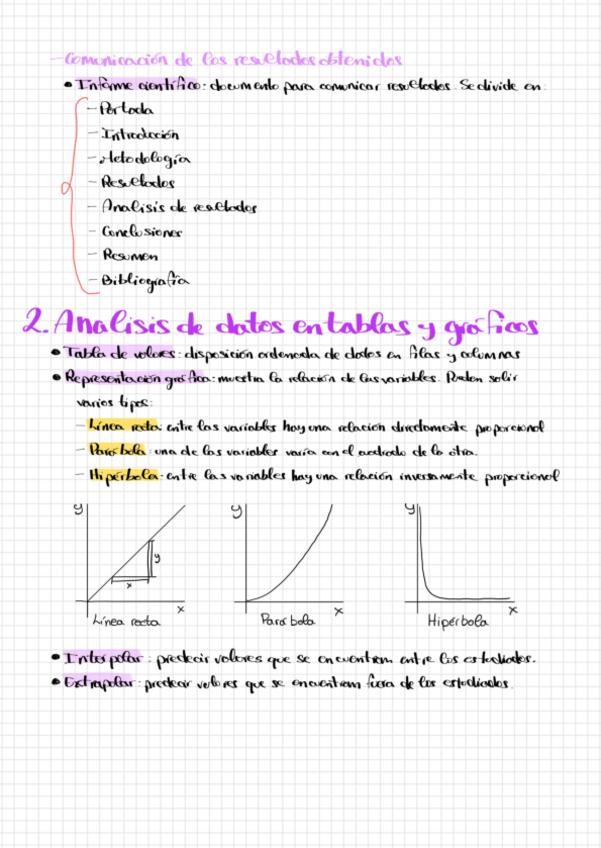 -Comunicación de los resultados obtenidos
• Informe científico: documento para comunicar resultados. Se divide en:
- Portada
- Introducción
- Metodología
- Resultados
- Analisis de resultados
- Conclusiones
- Resumen
- Bibliografía
2. Analisis de datos en tablas y gráficos
• Tabla de valores: disposición ordenada de datos en filas y columnas
• Representación gráfica: muestra la relación de las variables. Pueden salir
varios tipos:
- Línea recta: entre las variables hay una relación directamente proporcional
- Parábola: una de las variables varía con el cuadrado de la otra.
- Hipérbola: entre las variables hay una relación inversamente proporcional
y y y
y
x
x x x
Línea recta Parábola Hipérbola
• Interpolar: predecir valores que se encuentran entre los estudiados.
• Extrapolar: predecir valores que se encuentran fuera de los estudiados.